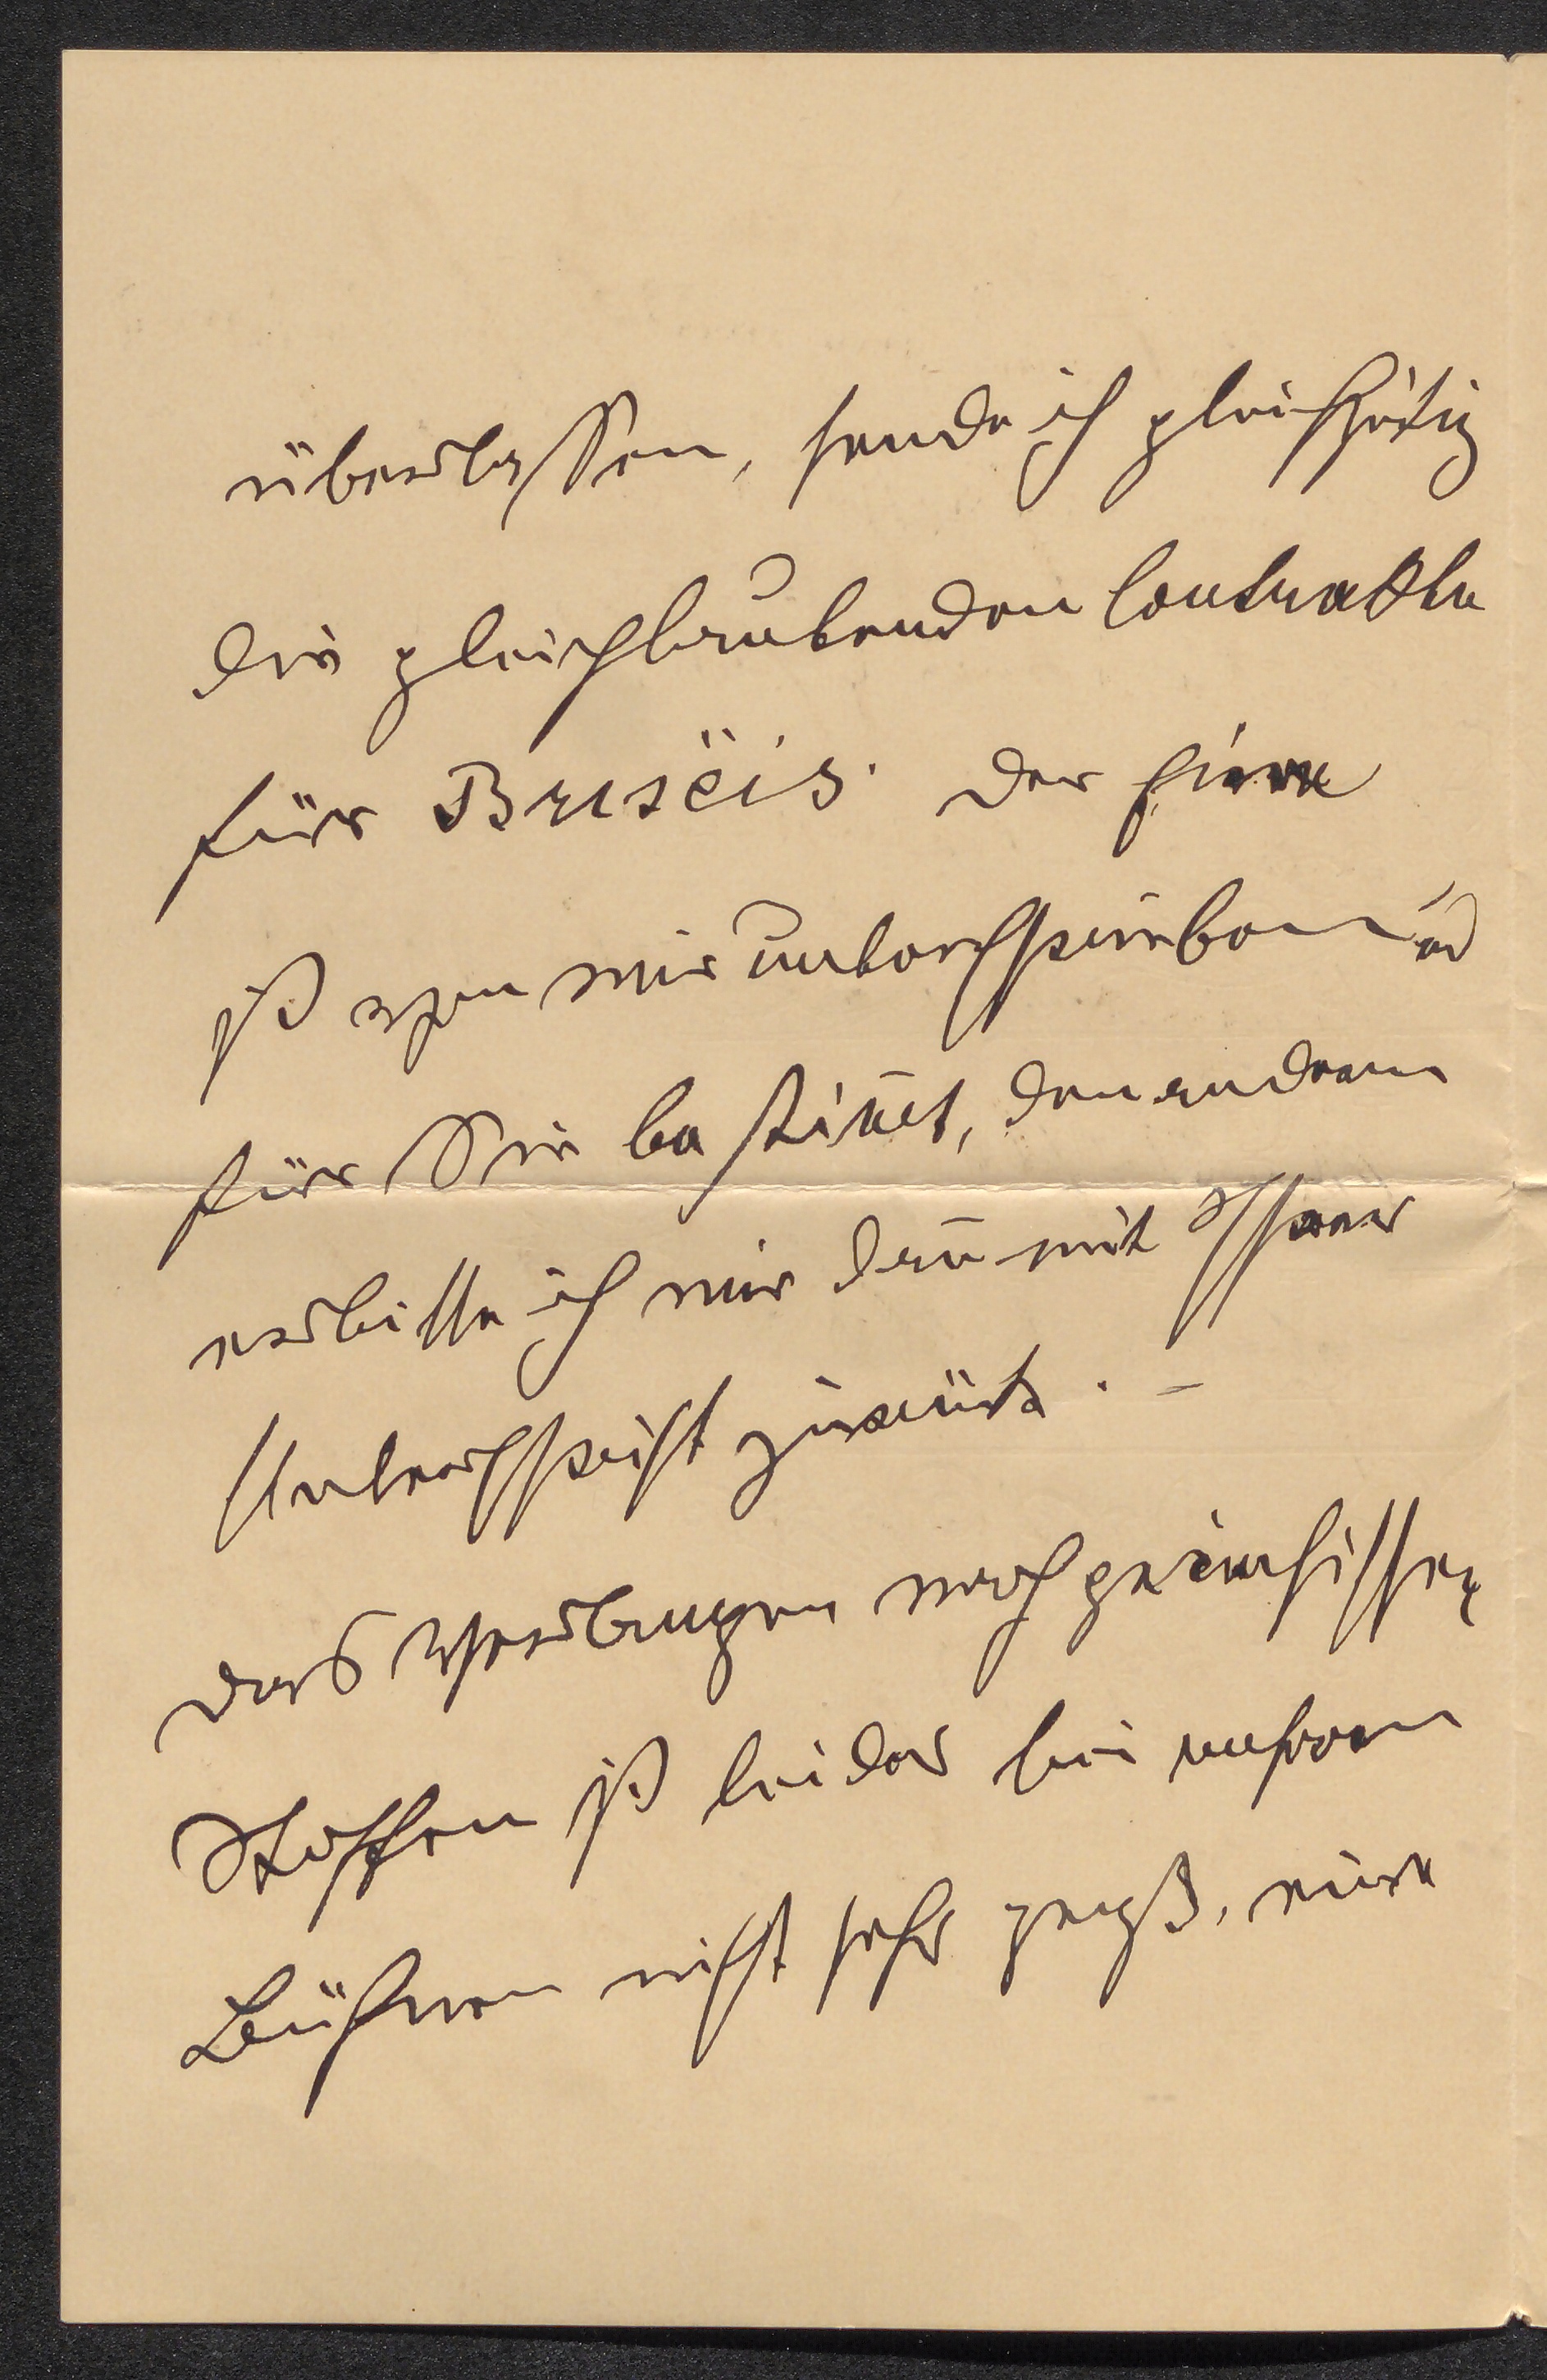 überlassen, sende ich gleichzeitig
die gleichlautenden Contrakte
für Briseïs. Der eine
ist von mir unterschrieben u
für Sie bestim̅t, den andern
erbitte ich mir dan̅ mit Ihrer
Unterschrift zurück. –
Das Verlangen nach griechischen
Stoffen ist leider bei unseren
Bühnen nicht sehr groß, eine